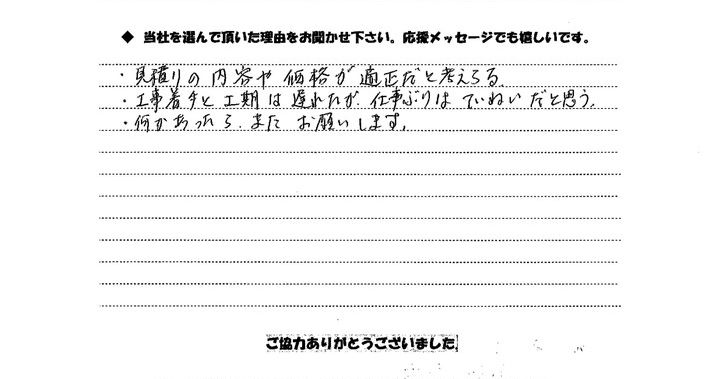 ◆ 当社を選んで頂いた理由をお聞かせ下さい。応援メッセージでも嬉しいです。
・見積りの内容や価格が適正だと考える。
・工事着手と工期は遅れたが、仕事ぶりはていねいだと思う。
・何かあったら、またお願いします。
ご協力ありがとうございました